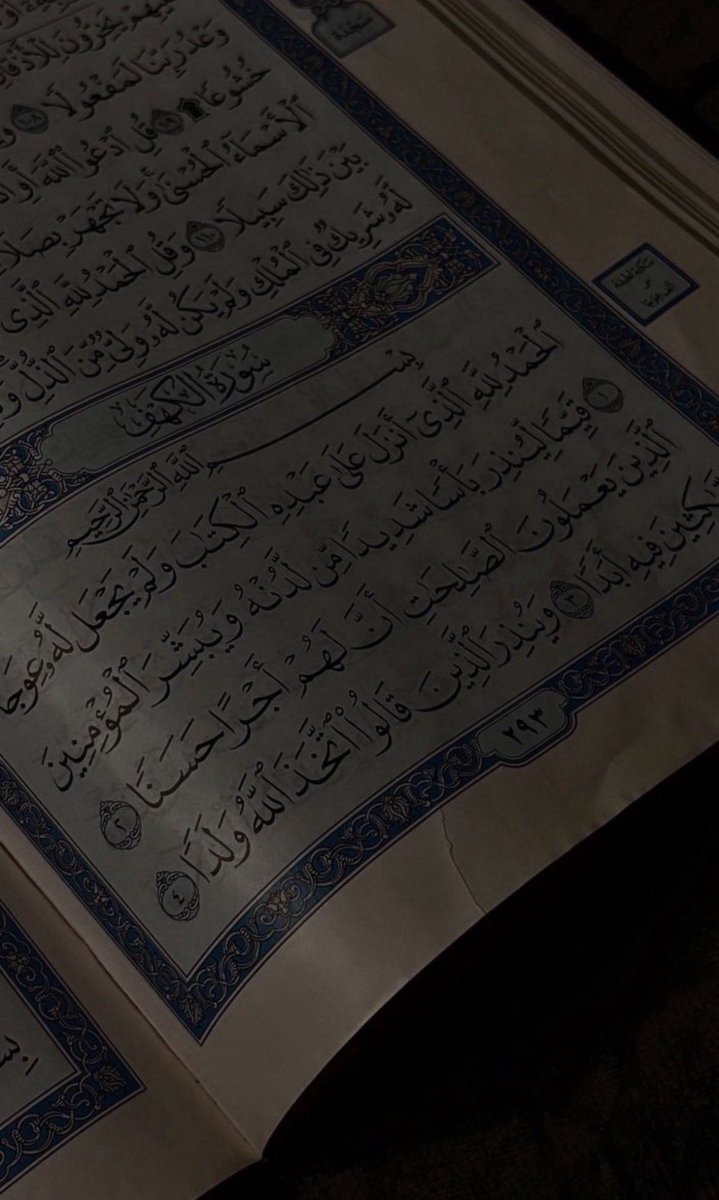 يَخِرُّونَ لِلْأَذْقَا
سَجْدَة
وَعْدُ رَبِّنَا لَمَفْعُولًا ١٠٨
خُشُوعًا ۩ ١٠٩ قُلِ ٱدْعُوا۟ ٱللَّهَ أَوِ
ٱلْأَسْمَآءُ ٱلْحُسْنَىٰ وَلَا تَجْهَرْ بِصَلَا
بَيْنَ ذَٰلِكَ سَبِيلًا ١١٠ وَقُلِ ٱلْحَمْدُ لِلَّهِ ٱلَّذِى
لَّهُۥ شَرِيكٌ فِى ٱلْمُلْكِ وَلَمْ يَكُن لَّهُۥ وَلِىٌّ مِّنَ ٱلذُّلِّ
سكتة لطيفة
سُورَةُ ٱلْكَهْفِ
بِسْمِ ٱللَّهِ ٱلرَّحْمَٰنِ ٱلرَّحِيمِ
ٱلْحَمْدُ لِلَّهِ ٱلَّذِىٓ أَنزَلَ عَلَىٰ عَبْدِهِ ٱلْكِتَٰبَ وَلَمْ يَجْعَل لَّهُۥ عِوَجَا
١ قَيِّمًا لِّيُنذِرَ بَأْسًا شَدِيدًا مِّن لَّدُنْهُ وَيُبَشِّرَ ٱلْمُؤْمِنِينَ
ٱلَّذِينَ يَعْمَلُونَ ٱلصَّٰلِحَٰتِ أَنَّ لَهُمْ أَجْرًا حَسَنًا ٢
مَّٰكِثِينَ فِيهِ أَبَدًا ٣ وَيُنذِرَ ٱلَّذِينَ قَالُوا۟ ٱتَّخَذَ ٱللَّهُ وَلَدًا ٤
٢٩٣